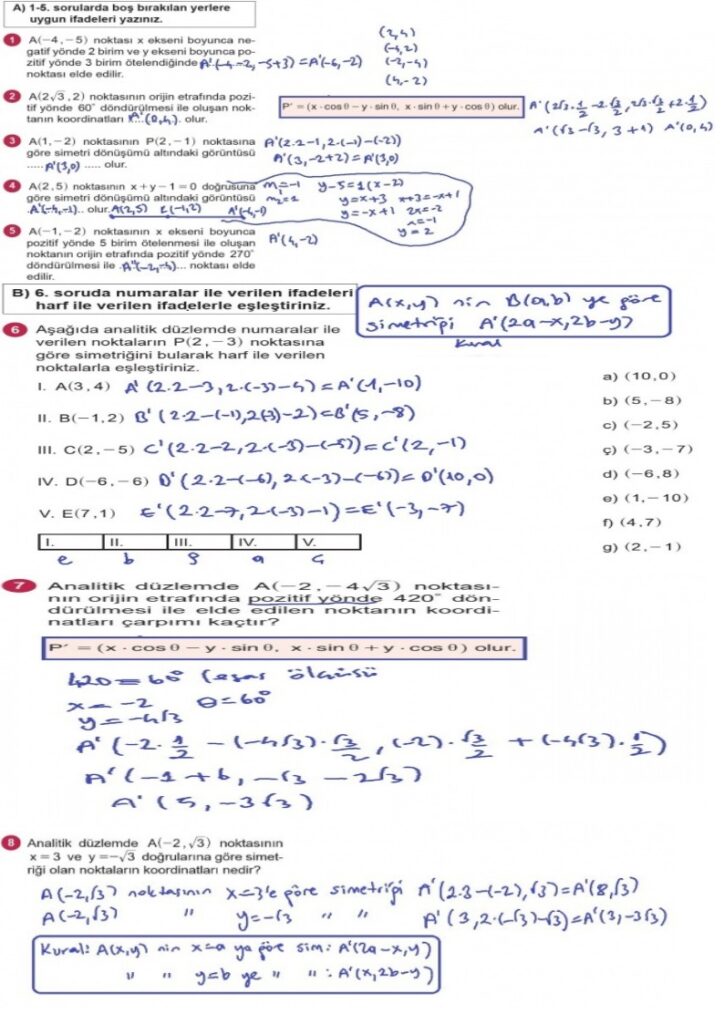 A) 1-5. sorularda boş bırakılan yerlere
uygun ifadeleri yazınız.
1 A(−4, −5) noktası x ekseni boyunca ne-
gatif yönde 2 birim ve y ekseni boyunca po-
zitif yönde 3 birim ötelendiğinde A'(-4-2,-5+3)=A'(-6,-2)
noktası elde edilir.
(2,4)
(-4,2)
(-2,-4)
(4,-2)
2 A(2√3 , 2) noktasının orijin etrafında pozi-
tif yönde 60° döndürülmesi ile oluşan nok-
tanın koordinatları ..A'(0,4).. olur.
P' = (x · cos θ − y · sin θ, x · sin θ + y · cos θ) olur.
A'(2√3·1/2 -2·√3/2, 2√3·√3/2+2·1/2)
A'(√3-√3, 3+1) A'(0,4)
3 A(1, −2) noktasının P(2, −1) noktasına
göre simetri dönüşümü altındaki görüntüsü
..... A'(3,0) ..... olur.
A'(2·2-1, 2·(-1)-(-2))
A'(3,-2+2)=A'(3,0)
4 A(2, 5) noktasının x + y − 1 = 0 doğrusuna
göre simetri dönüşümü altındaki görüntüsü
.A'(-4,-1).. olur. A(2,5) (-1,2) A'(-4,-1)
m₁=-1 y-5=1(x-2)
m₂=1 y=x+3 x+3=-x+1
y=-x+1 2x=-2
x=-1
y=2
5 A(−1, −2) noktasının x ekseni boyunca
pozitif yönde 5 birim ötelenmesi ile oluşan
noktanın orijin etrafında pozitif yönde 270°
döndürülmesi ile .A''(-2,-4)... noktası elde
edilir.
A'(4,-2)
B) 6. soruda numaralar ile verilen ifadeleri
harf ile verilen ifadelerle eşleştiriniz.
A(x,y) nin B(a,b) ye göre
simetriği A'(2a-x,2b-y)
Kural
6 Aşağıda analitik düzlemde numaralar ile
verilen noktaların P(2, −3) noktasına
göre simetriğini bularak harf ile verilen
noktalarla eşleştiriniz.
I. A(3, 4) A'(2·2-3,2·(-3)-4)=A'(1,-10)
II. B(−1, 2) B'(2·2-(-1),2(-3)-2)=B'(5,-8)
III. C(2, −5) C'(2·2-2,2·(-3)-(-5))=C'(2,-1)
IV. D(−6, −6) D'(2·2-(-6),2(-3)-(-6))=D'(10,0)
V. E(7, 1) E'(2·2-7,2·(-3)-1)=E'(-3,-7)
a) (10, 0)
b) (5, −8)
c) (−2, 5)
ç) (−3, −7)
d) (−6, 8)
e) (1, −10)
f) (4, 7)
g) (2, −1)
I. II. III. IV. V.
e b g a ç
7 Analitik düzlemde A(−2, −4√3) noktası-
nın orijin etrafında pozitif yönde 420° dön-
dürülmesi ile elde edilen noktanın koordi-
natları çarpımı kaçtır?
P' = (x · cos θ − y · sin θ, x · sin θ + y · cos θ) olur.
420=60° (esas ölçüsü
x=-2 θ=60°
y=-4√3
A'(-2·1/2 -(-4√3)·√3/2, (-2)·√3/2 +(-4√3)·1/2)
A'(-1+6, -√3 -2√3)
A'(5,-3√3)
8 Analitik düzlemde A(−2, √3) noktasının
x = 3 ve y = −√3 doğrularına göre simet-
riği olan noktaların koordinatları nedir?
A(-2,√3) noktasının x=3'e göre simetriği A'(2·3-(-2),√3)=A'(8,√3)
A(-2,√3) " y=-√3 " " A'(3,2·(-√3)-√3)=A'(3,-3√3)
Kural: A(x,y) nin x=a ya göre sim: A'(2a-x,y)
" " y=b ye " " : A'(x,2b-y)